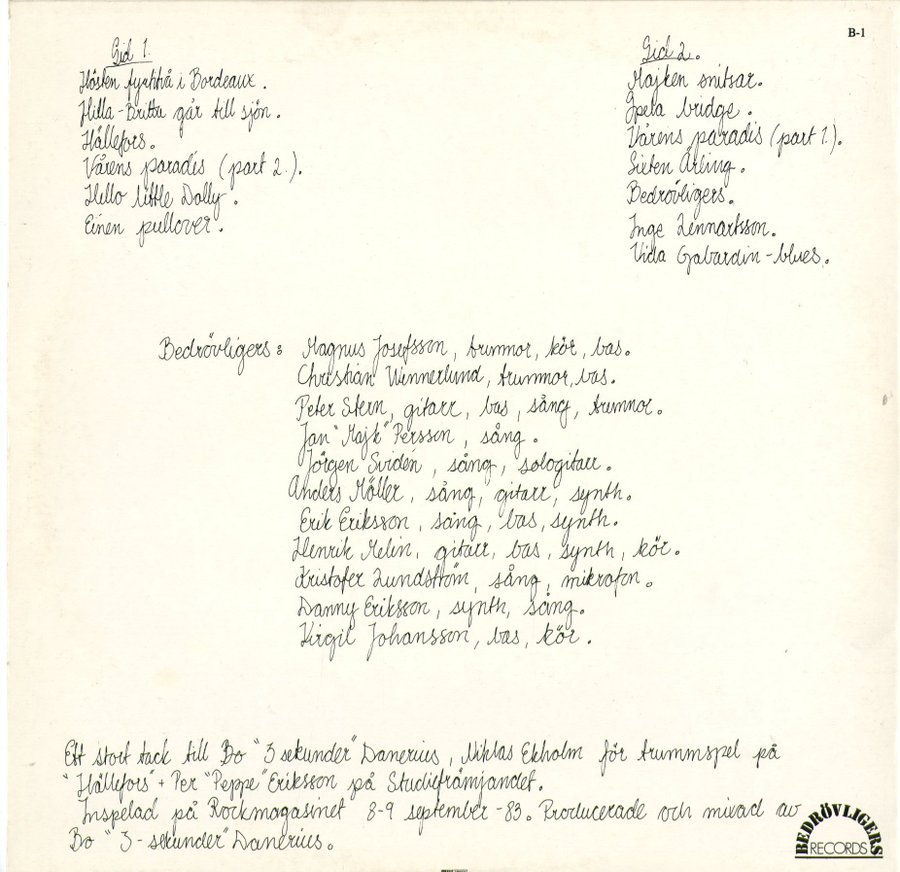 B-1
Sid 1.
Hösten fyrtitvå i Bordeaux.
Hilla-Britta går till sjön.
Hällefors.
Vårens paradis (part 2.).
Hello little Dolly.
Einen pullover.
Sid 2.
Majken snitsar.
Spela bridge.
Vårens paradis (part 1.).
Sixten Ärling.
Bedrövligers.
Inge Lennartsson.
Vida Gabardin-blues.
Bedrövligers: Magnus Josefsson, trummor, kör, bas.
Christian Wennerlund, trummor, bas.
Peter Stern, gitarr, bas, sång, trummor.
Jan "Majk" Persson, sång.
Jörgen Svidén, sång, sologitarr.
Anders Möller, sång, gitarr, synth.
Erik Eriksson, sång, bas, synth.
Henrik Melin, gitarr, bas, synth, kör.
Kristofer Lundström, sång, mikrofon.
Danny Eriksson, synth, sång.
Virgil Johansson, bas, kör.
Ett stort tack till Bo "3 sekunder" Danerius, Niklas Ekholm för trummspel på
"Hällefors" + Per "Peppe" Eriksson på Studiefrämjandet.
Inspelad på Rockmagasinet 8-9 september -83. Producerade och mixad av
Bo "3-sekunder" Danerius.
BEDRÖVLIGERS
RECORDS